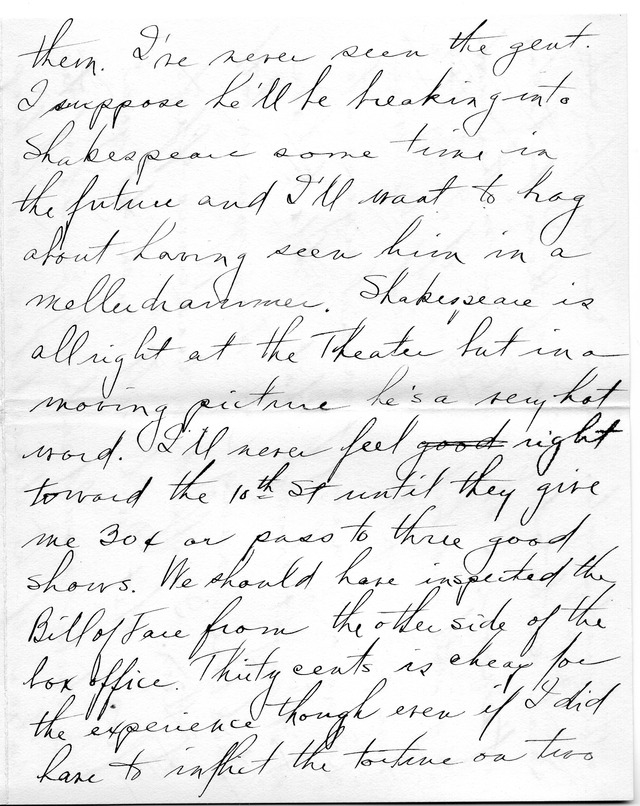 them. I've never seen the gent.
I suppose he'll be breaking into
Shakespeare some time in
the future and I'll want to brag
about having seen him in a
mellerdrammer. Shakespeare is
allright at the Theater but in a
moving picture he's a very hot
word. I'll never feel good right
toward the 10th St until they give
me 30¢ or pass to three good
shows. We should have inspected the
Bill of Fare from the other side of the
box office. Thirty cents is cheap for
the experience though even if I did
have to inflict the torture on two